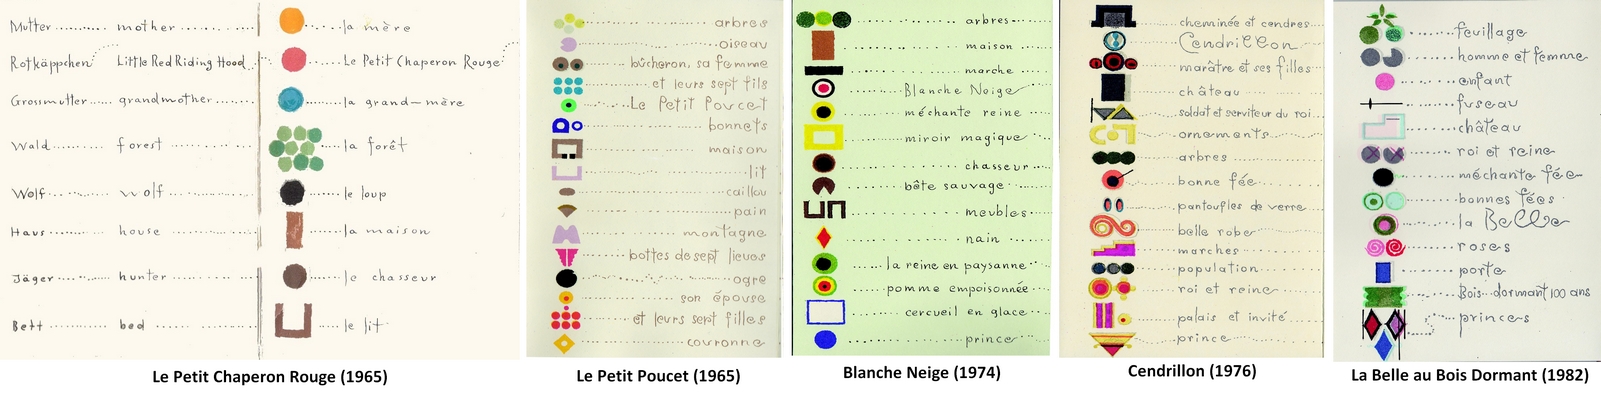 Mutter mother la mère
Rotkäppchen Little Red Riding Hood Le Petit Chaperon Rouge
Grossmutter grandmother la grand-mère
Wald forest la forêt
Wolf wolf le loup
Haus house la maison
Jäger hunter le chasseur
Bett bed le lit
Le Petit Chaperon Rouge (1965)
arbres
oiseau
bûcheron, sa femme
et leurs sept fils
Le Petit Poucet
bonnets
maison
lit
caillou
pain
montagne
bottes de sept lieues
ogre
son épouse
et leurs sept filles
couronne
Le Petit Poucet (1965)
arbres
maison
marche
Blanche Neige
méchante reine
miroir magique
chasseur
bête sauvage
meubles
nain
la reine en paysanne
pomme empoisonnée
cercueil en glace
prince
Blanche Neige (1974)
cheminée et cendres
Cendrillon
marâtre et ses filles
château
soldat et serviteur du roi
ornements
arbres
bonne fée
pantoufles de verre
belle robe
marches
population
roi et reine
palais et invité
prince
Cendrillon (1976)
feuillage
homme et femme
enfant
fuseau
château
roi et reine
méchante fée
bonnes fées
la Belle
roses
porte
Bois dormant 100 ans
princes
La Belle au Bois Dormant (1982)